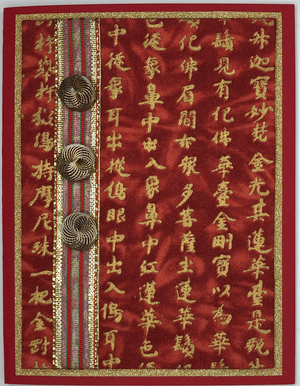 迦寶妙梵金光其蓮華臺是甄
鬚見有化佛華臺金剛寶以為華
化佛眉間亦眾多菩薩坐蓮華鬚
色從象鼻中出入象鼻中紅蓮華色
中從象耳出從象眼中出入象耳中
摩尼珠一金